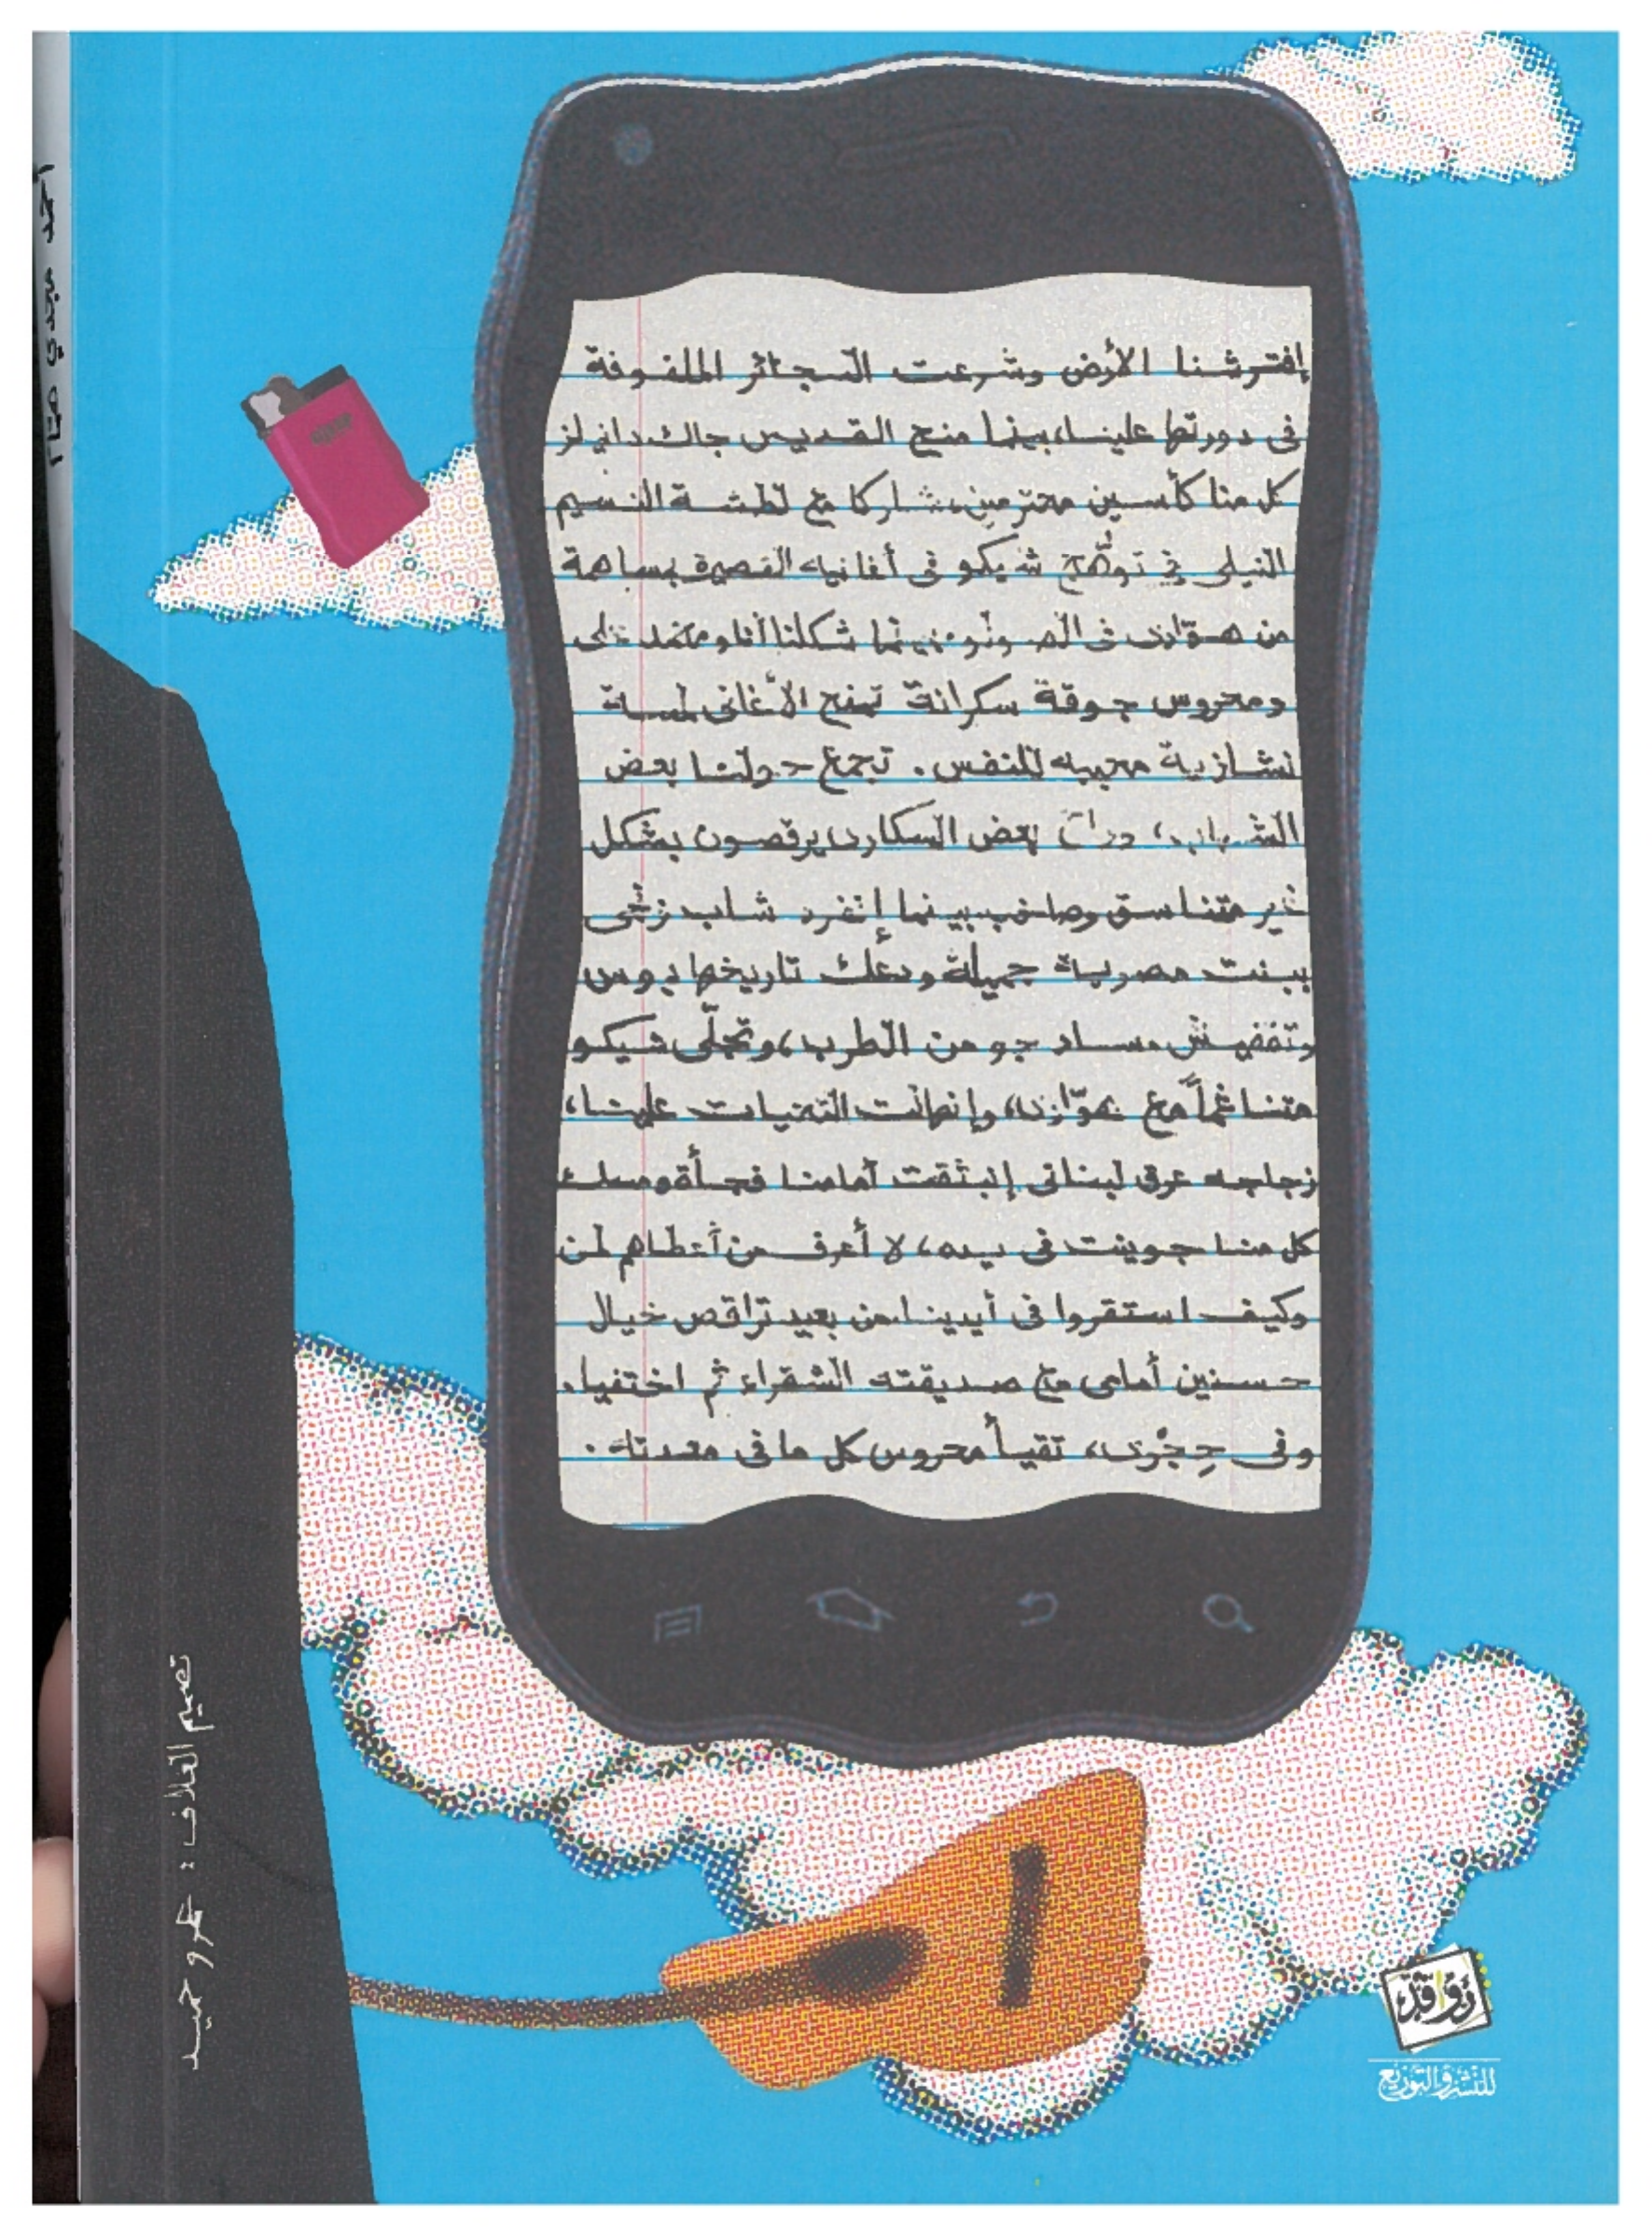 إفترشنا الأرض وشرعت السجائر الملفوفة
فى دورتها علينا، بينما منح القديس جاك دانيلز
كل منا كأسين محترمين، شاركا مع لطشة النسيم
النيلى في توهّج شيكو فى أغانيه القصيرة بمساهمة
من هوّارى فى الصولو، بينما شكلنا أنا ومحمد على
ومحروس جوقة سكرانة تمنح الأغانى لمسة
نشازية محببه للنفس. تجمع حولنا بعض
الشباب، بعض السكارى يرقصون بشكل
غير متناسق وصاخب بينما إنفرد شاب زنجى
ببنت مصرية جميلة تاريخها بوس
ساد جو من الطرب، وتجلّى شيكو
متناغماً مع هوّارى، وإنهالت التحيات علينا،
زجاجه عرق لبنانى إنبثقت أمامنا فجأة ومسك
كل منا جوينت فى يده، لا أعرف من أعطاهم لمن
وكيف استقروا فى أيدينا. من بعيد تراقص خيال
حسنين أمامى مع صديقته الشقراء ثم اختفيا.
وفى حِجْرى، تقيأ محروس كل ما فى معدته.
تصميم الغلاف: عمرو حميد
أحمد مجدي همام
روافد
للنشر والتوزيع